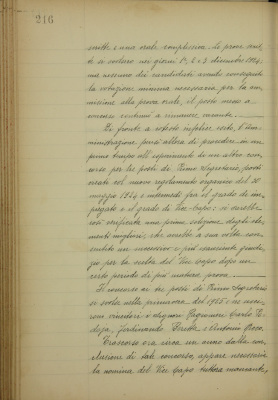 216
scritte e una orale complessiva. Le prove scrit-
te si svolsero nei giorni 1°, 2 e 3 dicembre 1924,
ma nessuno dei candidati avendo conseguito
la votazione minima necessaria per la am-
missione alla prova orale, il posto messo a
concorso continuò a rimanere vacante.
Di fronte a cotesto esito, l'Am-
ministrazione pensò allora di procedere in un
primo tempo all'esperimento di un altro con-
corso per tre posti di Primo Segretario, posti
creati col nuovo regolamento organico del
maggio 1924 e intermedi fra il grado di im-
piegato e il grado di Vice-Capo; si sarebbe
così verificata una prima selezione degli ele-
menti migliori, che avrebbe a sua volta con-
sentito un successivo e più giudi-
zio per la scelta del Vice Capo dopo un
certo periodo di più matura prova.
Il concorso ai tre posti di Primo Segretario
si svolse nella primavera del 1925 e ne usci-
rono vincitori i Signori Carlo
Ferdinando e Antonio
Trascorso ora circa un anno dalla
di tale concorso, appare necessaria
la nomina del Vice Capo tuttora mancante,